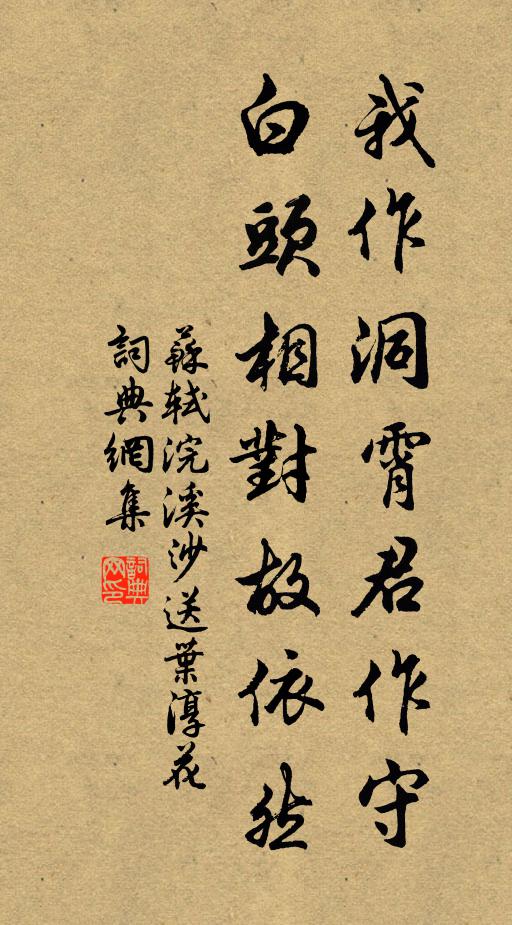 我作洞霄君作守
白頭相對故依然
蘇軾浣溪沙送葉淳花
詞典網集
詞典网印